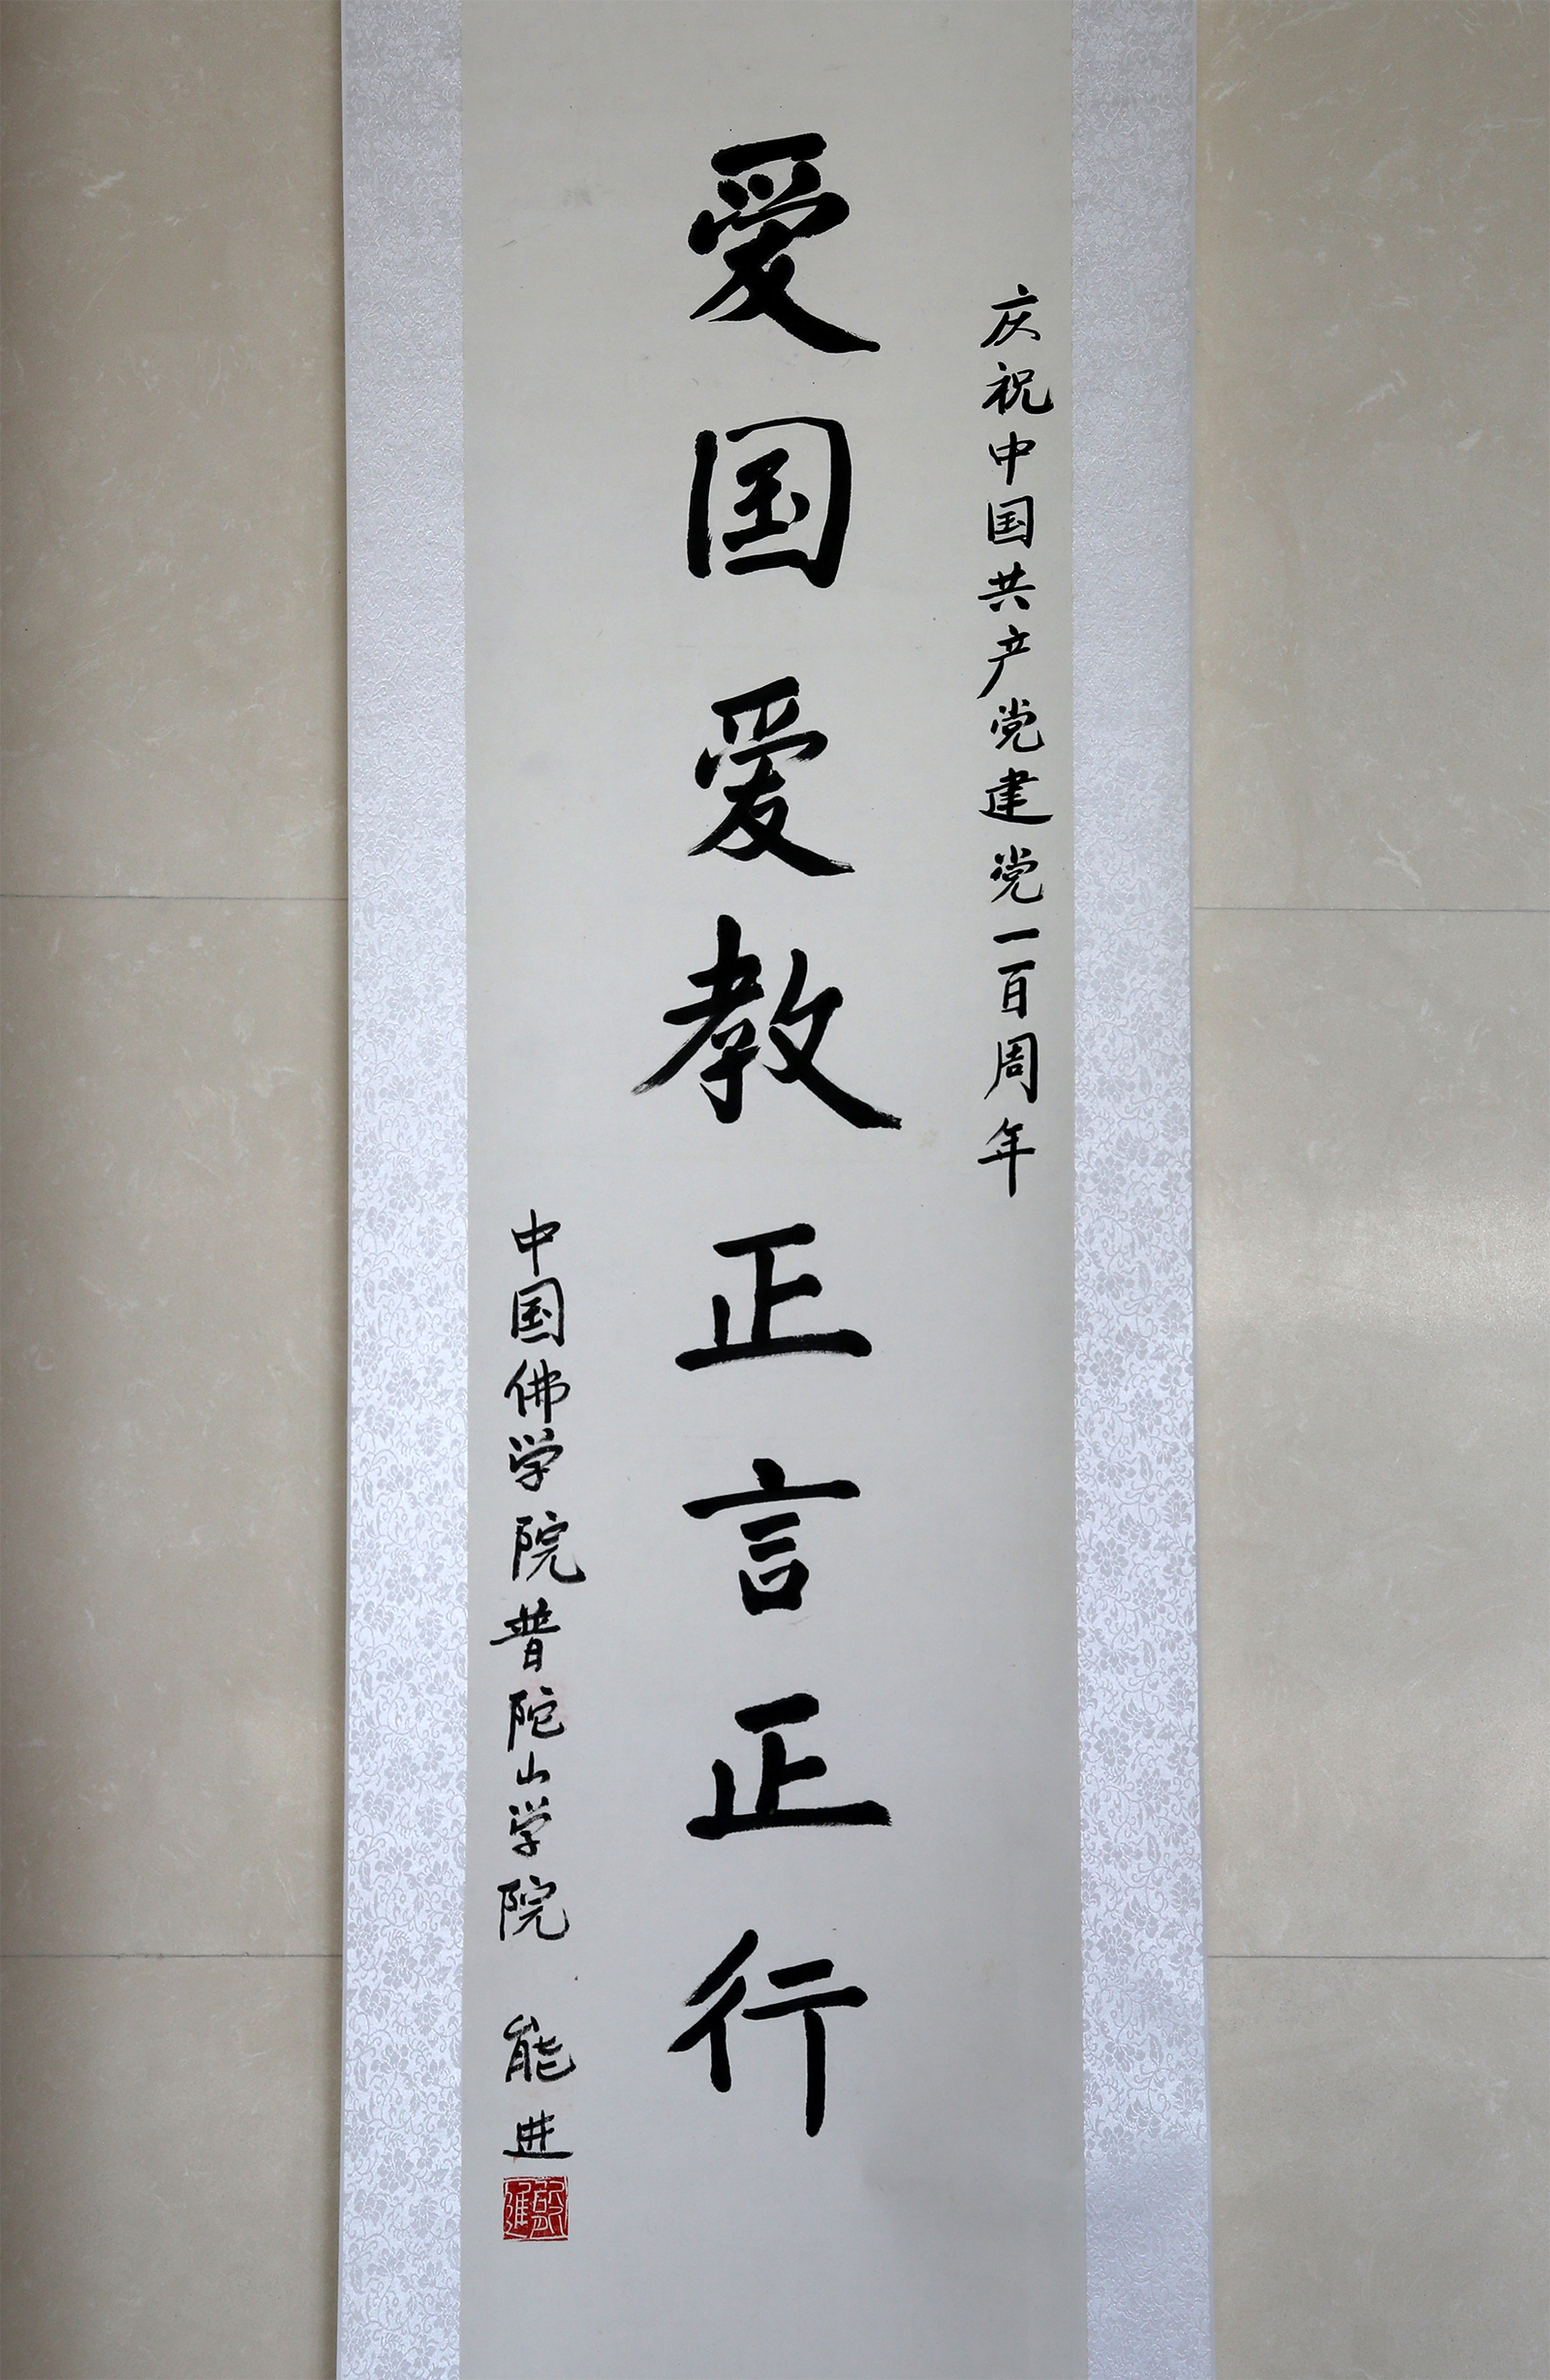 庆祝中国共产党建党一百周年
爱国爱教正言正行
中国佛学院普陀山学院 能进